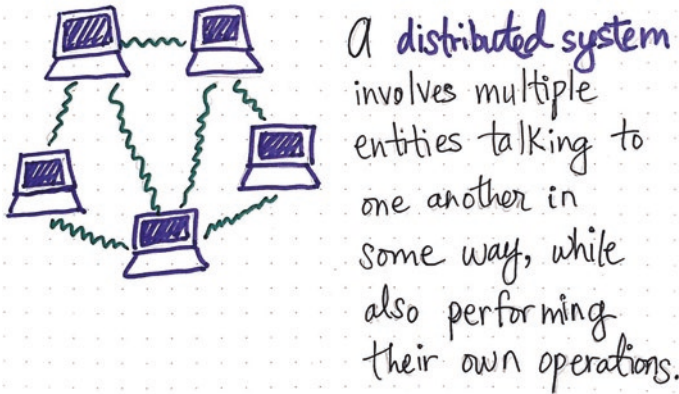 a distributed system
involves multiple
entities talking to
one another in
some way, while
also performing
their own operations.